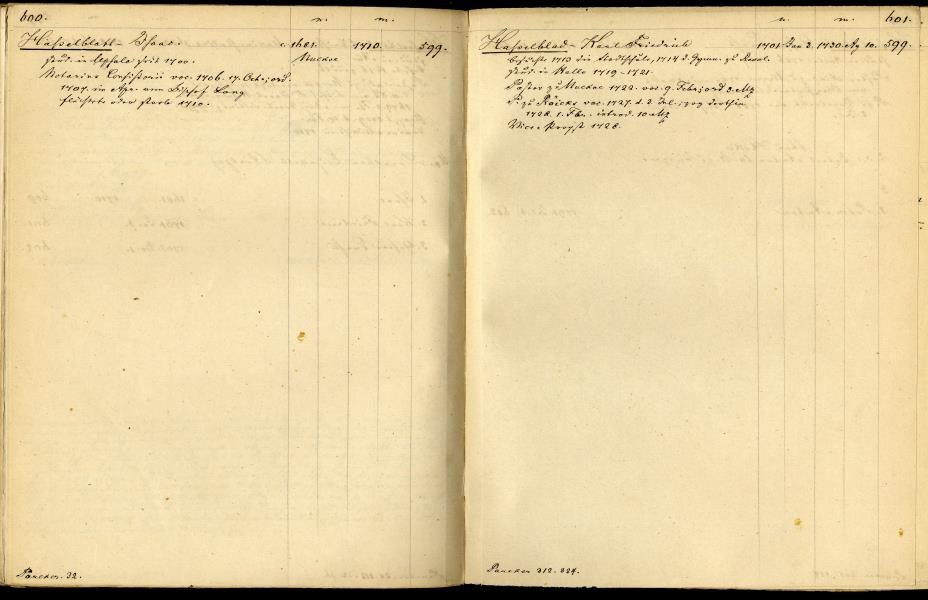 600.
n. m.
Hasselblatt - Isaac. c. 1681. 1710. 599.
Stud. in Upsala seit 1700. Muckse
Notarius Consistorii voc. 1706. 17. Oct.; ord.
1707. im Apr. vom Bischof Lang
flüchtete oder starb 1710.
Paucker. 32.
n. m. 601.
Hasselblad - Karl Friedrich 1701 Dec 2. 1730. Ag 10. 599.
besuchte 1713 die Stadtschule, 1714 d. Gymn. zu Reval.
Stud. in Halle 1719-1721.
Pastor zu Muckse 1722. voc. 9. Febr; ord 3. Mz
P. zu Röicks voc. 1727. d. 2. Jul.; zog dorthin
1728. 1. Fbr. introd. 10 Mz
Vice-Propst 1728.
Paucker 312. 324.